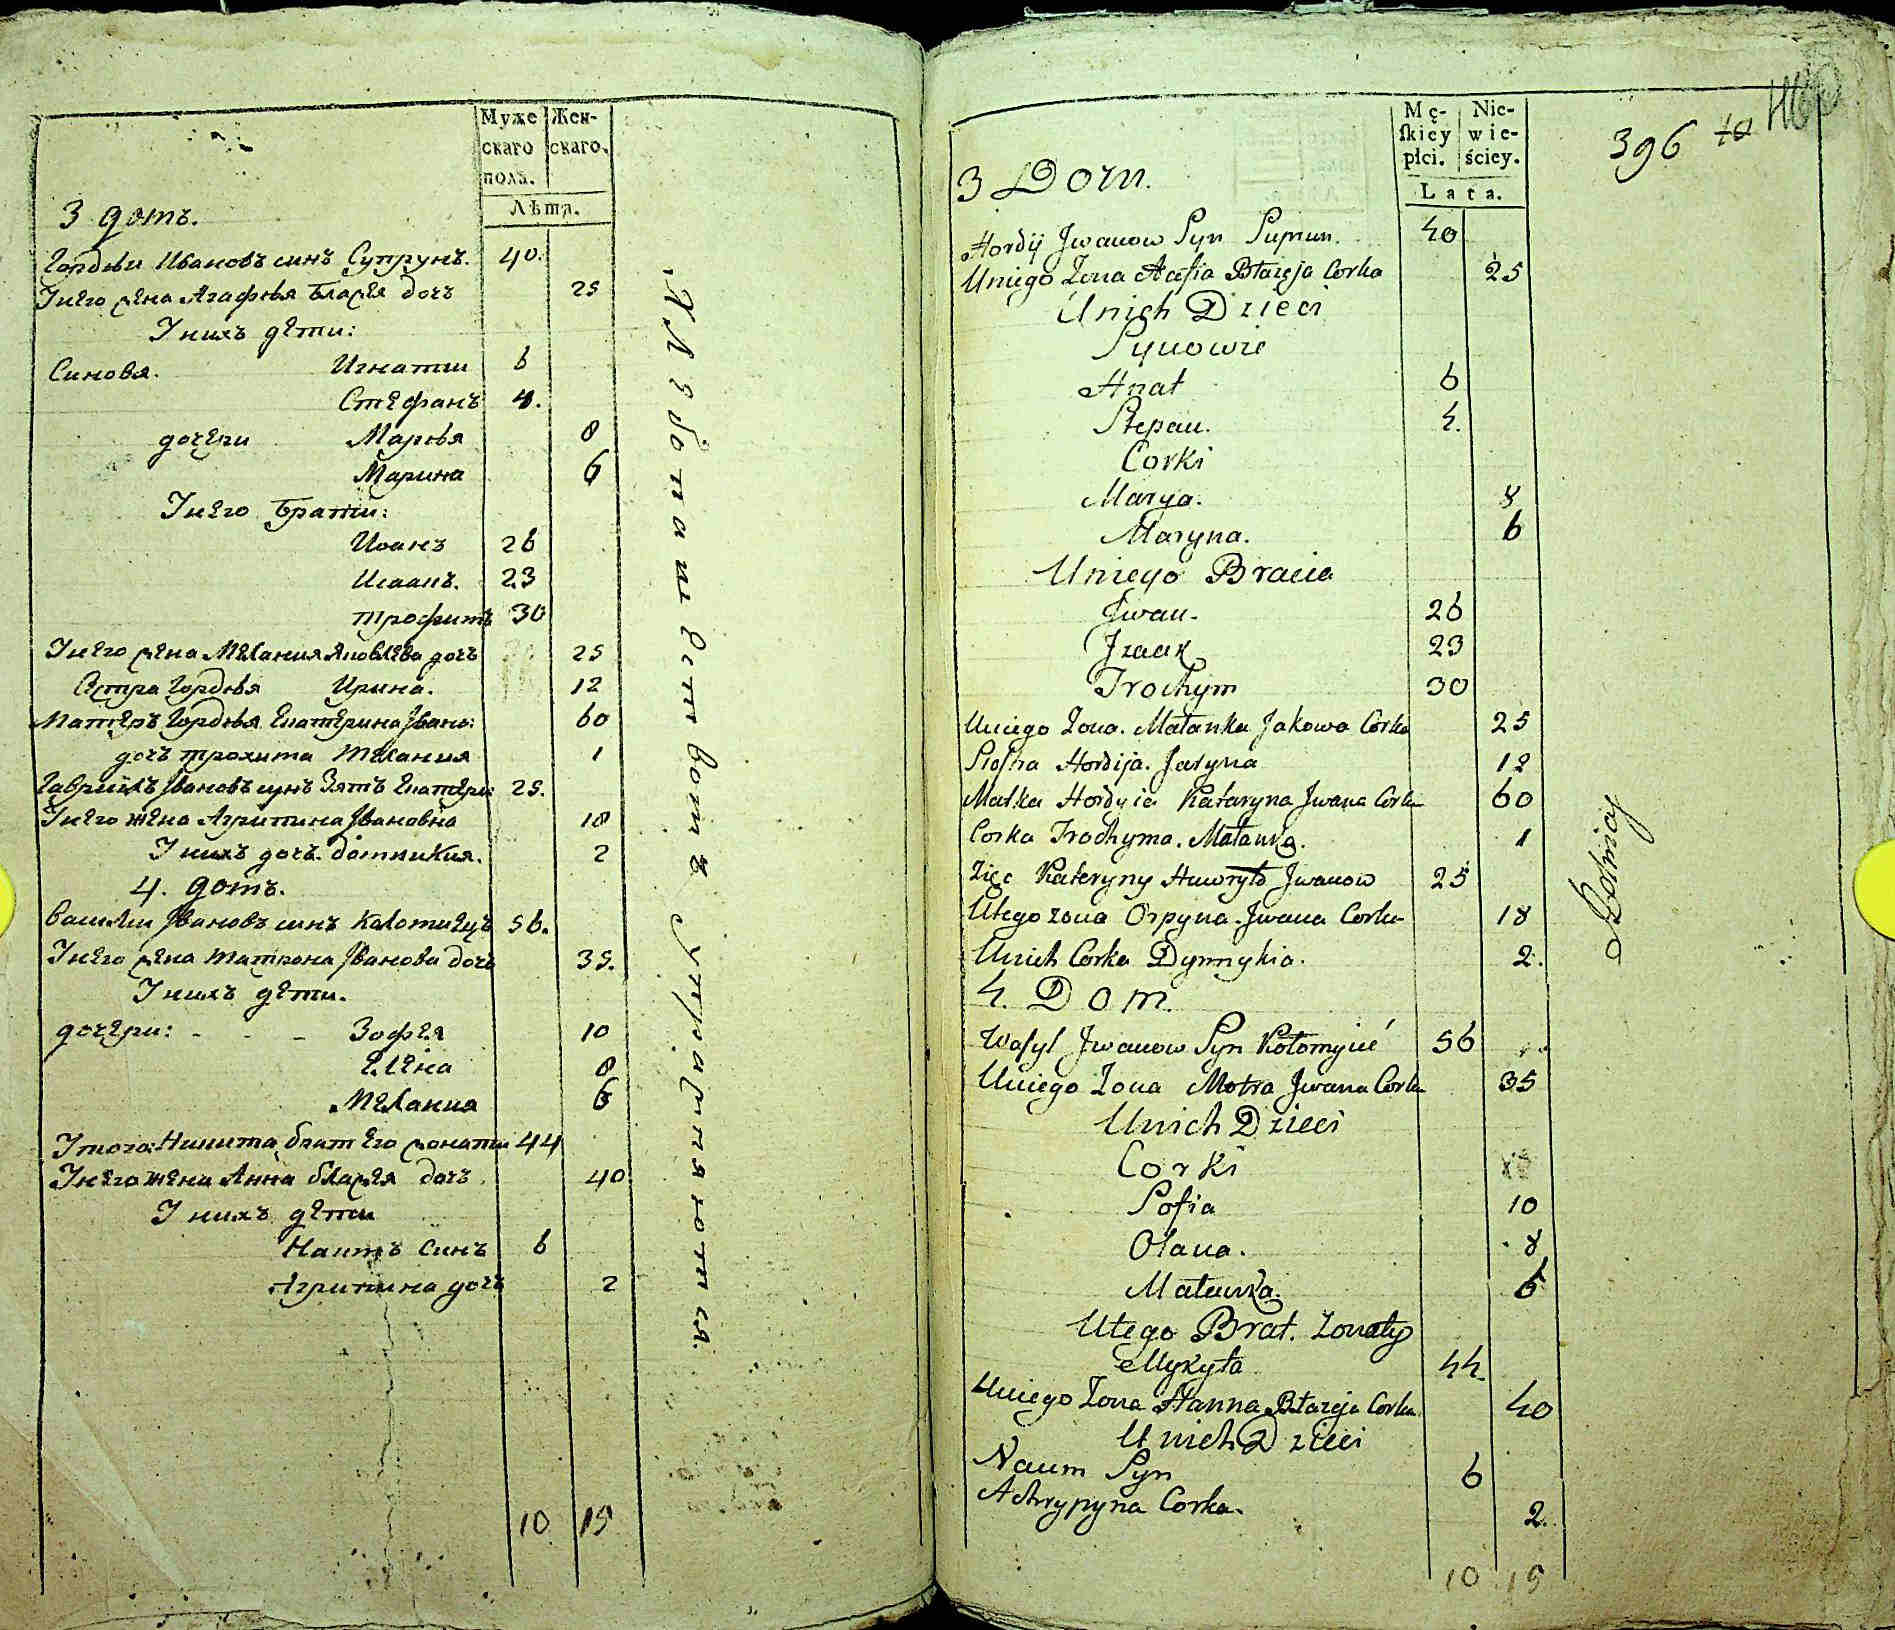 Муже
скаго
полъ.
Жен-
скаго.
Лѣта.
3 домъ.
Гордѣи Ивановъ синъ Супрунъ. 40.
Унего жена Агафѣя Блажея дочъ 25
Унихъ дѣти:
Синовя. Игнатии 6
Стефанъ 4.
дочери Марѣя 8
Марина 6
Унего братии:
Иванъ 26
Исаакъ. 23
Трофимъ 30
Унего жена Мелания Яковлева дочъ 25
Сестра Гордѣя Ирина. 12
Матеръ Гордѣя Екатерина Івано: 60
дочъ Трохима Мелания 1
Гавриилъ Івановъ синъ Зятъ Екатери: 25.
Унего жена Агрипина Івановна 18
Унихъ дочъ домникия. 2
4. домъ.
Василии Івановъ синъ Коломиецъ 56.
Унего жена Матрона Іванова дочъ 35.
Унихъ дѣти.
дочери: - - - Зофея 10
Елена 8
Мелания 6
Утого: Никита братъ его жонатии 44
Унего жена Анна блажея дочъ. 40
Унихъ дети
Наумъ синъ 6
Агрипина дочъ 2
10 15
Хлѣбопашествомъ упражняются.
Mę-
skiey
płci.
Nie-
wie-
ściey.
Lata.
396 10
3 Dom.
Hordij Jwanow Syn Suprun. 40
Uniego Zona Aafia Błażeja Corka 25
Unich Dzieci
Synowie
Hnat 6
Stepan. 4.
Corki
Marya. 8
Maryna. 6
Uniego Bracia
Jwan. 26
Jzaak 23
Trochym 30
Uniego Zona. Małanka Jakowa Corka 25
Siostra Hordija. Jaryna 12
Matka Hordyia Kataryna Jwana Corka 60
Corka Trochyma. Małanka. 1
Zięc Kateryny Hawryło Jwanow 25
Utego zona Orpyna Jwana Corka 18
Unich Corka Dymnykia. 2.
4. Dom.
Wasyl Jwanow Syn Kołomyieć 56
Uniego Zona Motra Jwana Corka 35
Unich Dzieci
Corki
Sofia 10
Olana. 8
Małanka. 6
Utego Brat. Zonaty
Mykyta 44.
Uniego Zona Hanna Błażeja Corka 40
Unich Dzieci
Naum Syn 6
Achrypyna Corka. 2.
10 15
Rolnicy